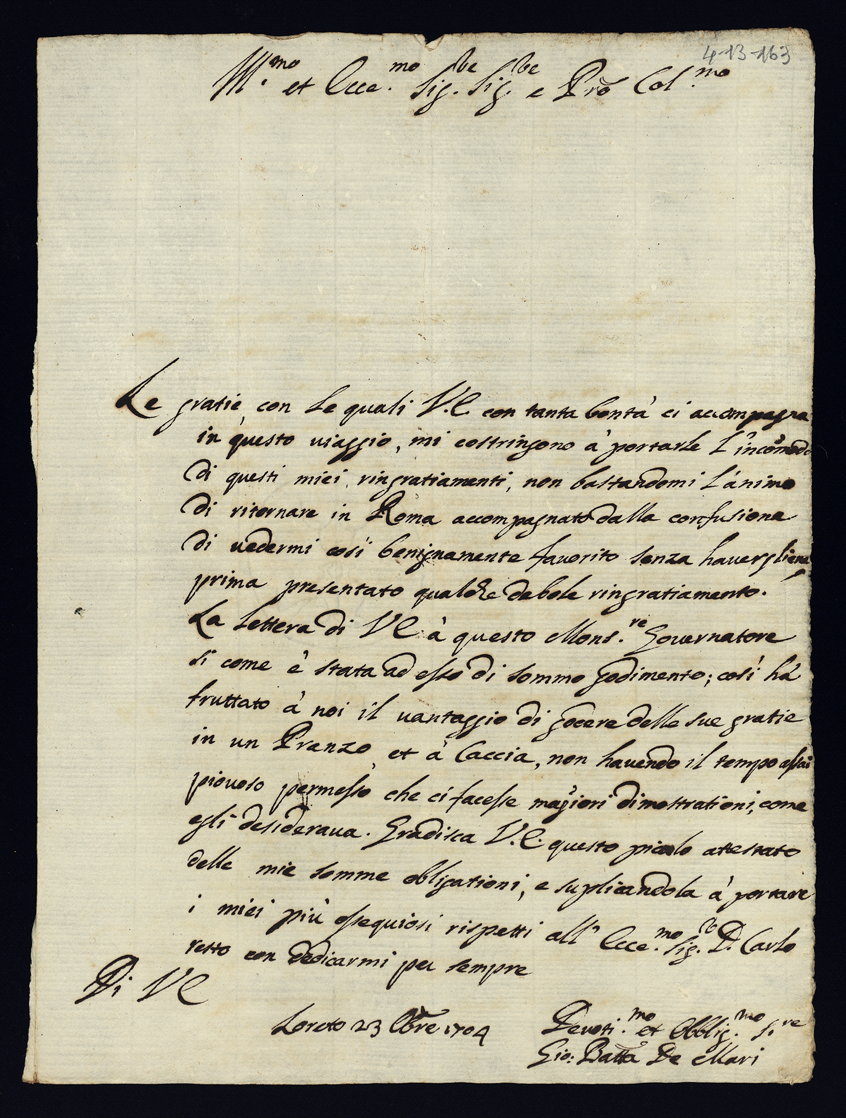 4-13-163
Ill.mo et Ecce.mo Sig.re Sig.re e Prõn Col.mo
Le gratie con le quali V.E. con tanta bontà ci accompagna
in questo viaggio, mi costringono à portarle l'incõmodo
di questi miei ringratiamenti, non bastandomi l'animo
di ritornare in Roma accompagnato dalla confusione
di vedermi così benignamente favorito senza havergliene
prima presentato qualche debole ringratiamento.
La lettera di V.E. à questo Mons.re Governatore
si come è stata ad esso di sommo godimento; così hà
fruttato à noi il vantaggio di godere delle sue gratie
in un Pranzo, et à Caccia, non havendo il tempo assai
piovoso permesso che ci facesse magiori dimostrationi, come
egli desiderava. Gradisca V.E. questo picolo atestato
delle mie somme obligationi, e suplicandola à portare
i miei più ossequiosi rispetti all' Ecce.mo Sig.re D. Carlo
resto con dedicarmi per sempre
Di V.E.
Loreto 23 8bre 1704
Devoti.mo et Obblig.mo S.re
Gio: Batta De Mari